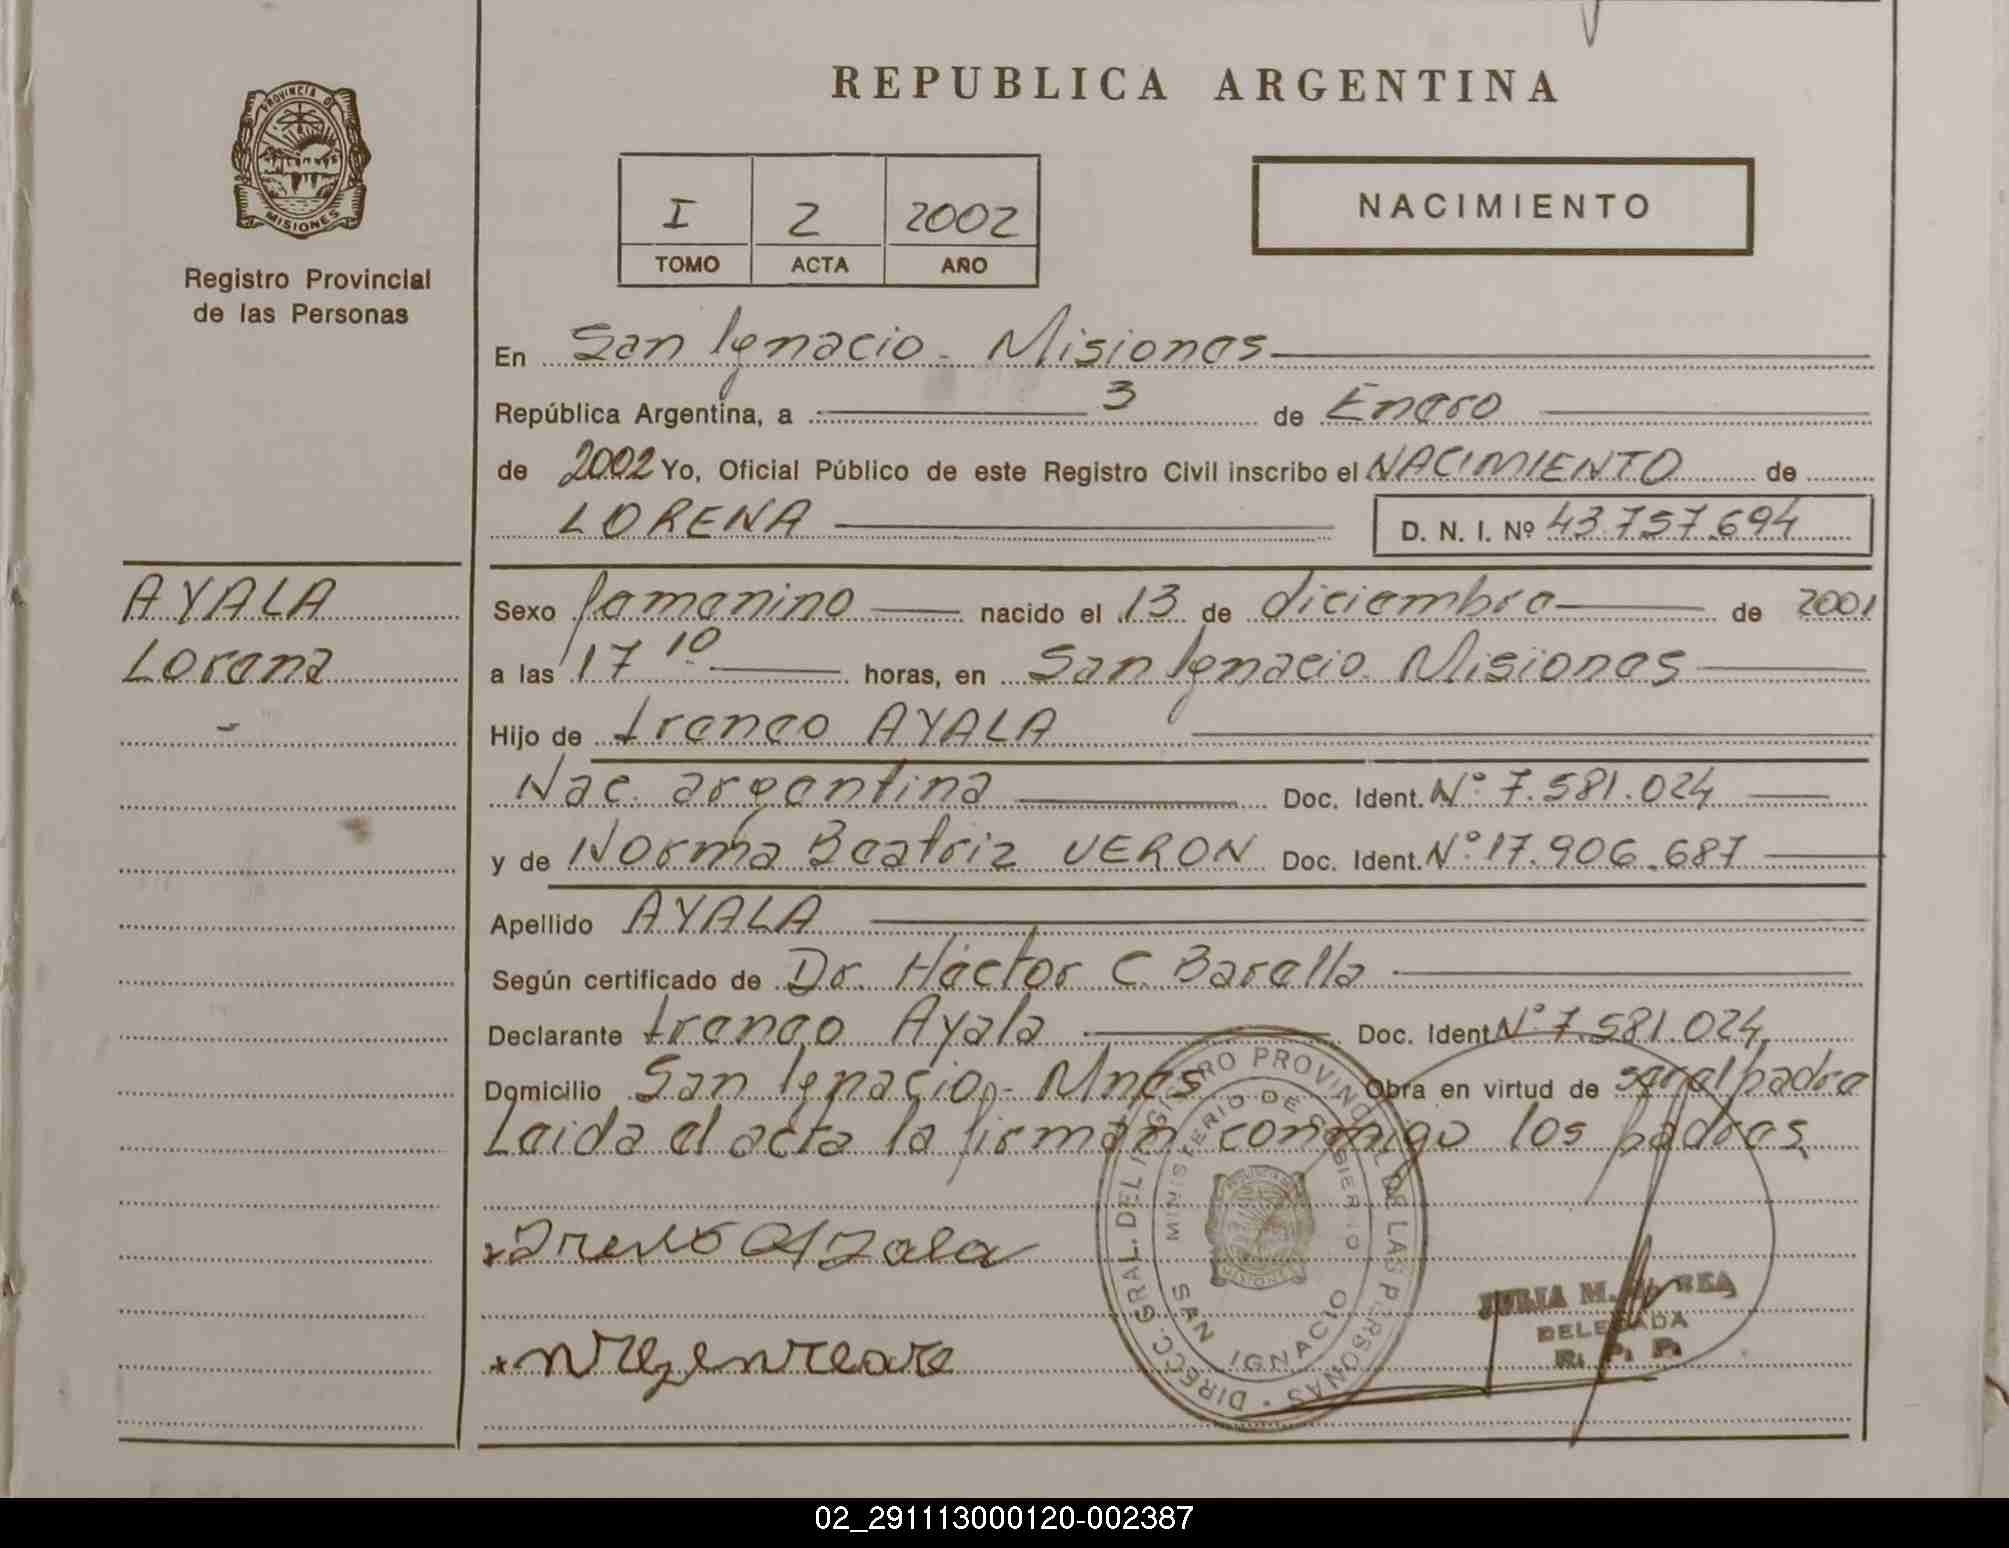 PROVINCIA DE
MISIONES
Registro Provincial
de las Personas
AYALA
Lorena
REPUBLICA ARGENTINA
I 2 2002
TOMO ACTA AÑO
NACIMIENTO
En San Ignacio - Misiones
República Argentina, a 3 de Enero
de 2002 Yo, Oficial Público de este Registro Civil inscribo el NACIMIENTO de
LORENA D. N. I. Nº 43.757.694
Sexo femenino nacido el 13 de diciembre de 2001
a las 17 10 horas, en San Ignacio Misiones
Hijo de Ireneo AYALA
Nac. argentina Doc. Ident. Nº 7.581.024
y de Norma Beatriz VERON Doc. Ident. Nº 17.906.687
Apellido AYALA
Según certificado de Dr. Héctor C. Barella
Declarante Ireneo Ayala Doc. Ident Nº 7.581.024
Domicilio San Ignacio - Mnes Obra en virtud de ser el padre
Leida el acta la firman conmigo los padres
DIRECC. GRAL. DEL REGISTRO PROVINCIAL DE LAS PERSONAS
MINISTERIO DE GOBIERNO
SAN IGNACIO
MISIONES
DELEGADA
R. P. P.
02_291113000120-002387